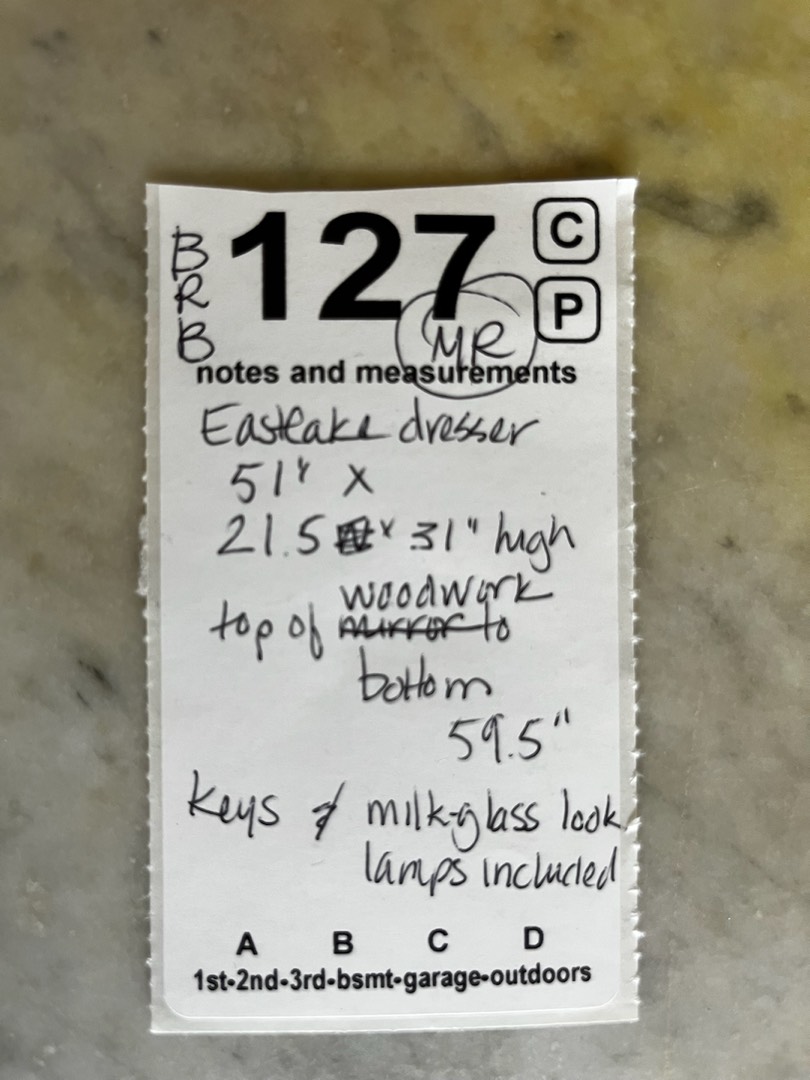 BRB
127
C
P
MR
notes and measurements
Eastlake dresser
51" X
21.5 x 31" high
woodwork
top of mirror to
bottom
59.5"
Keys & milk-glass look
lamps included
A B C D
1st-2nd-3rd-bsmt-garage-outdoors